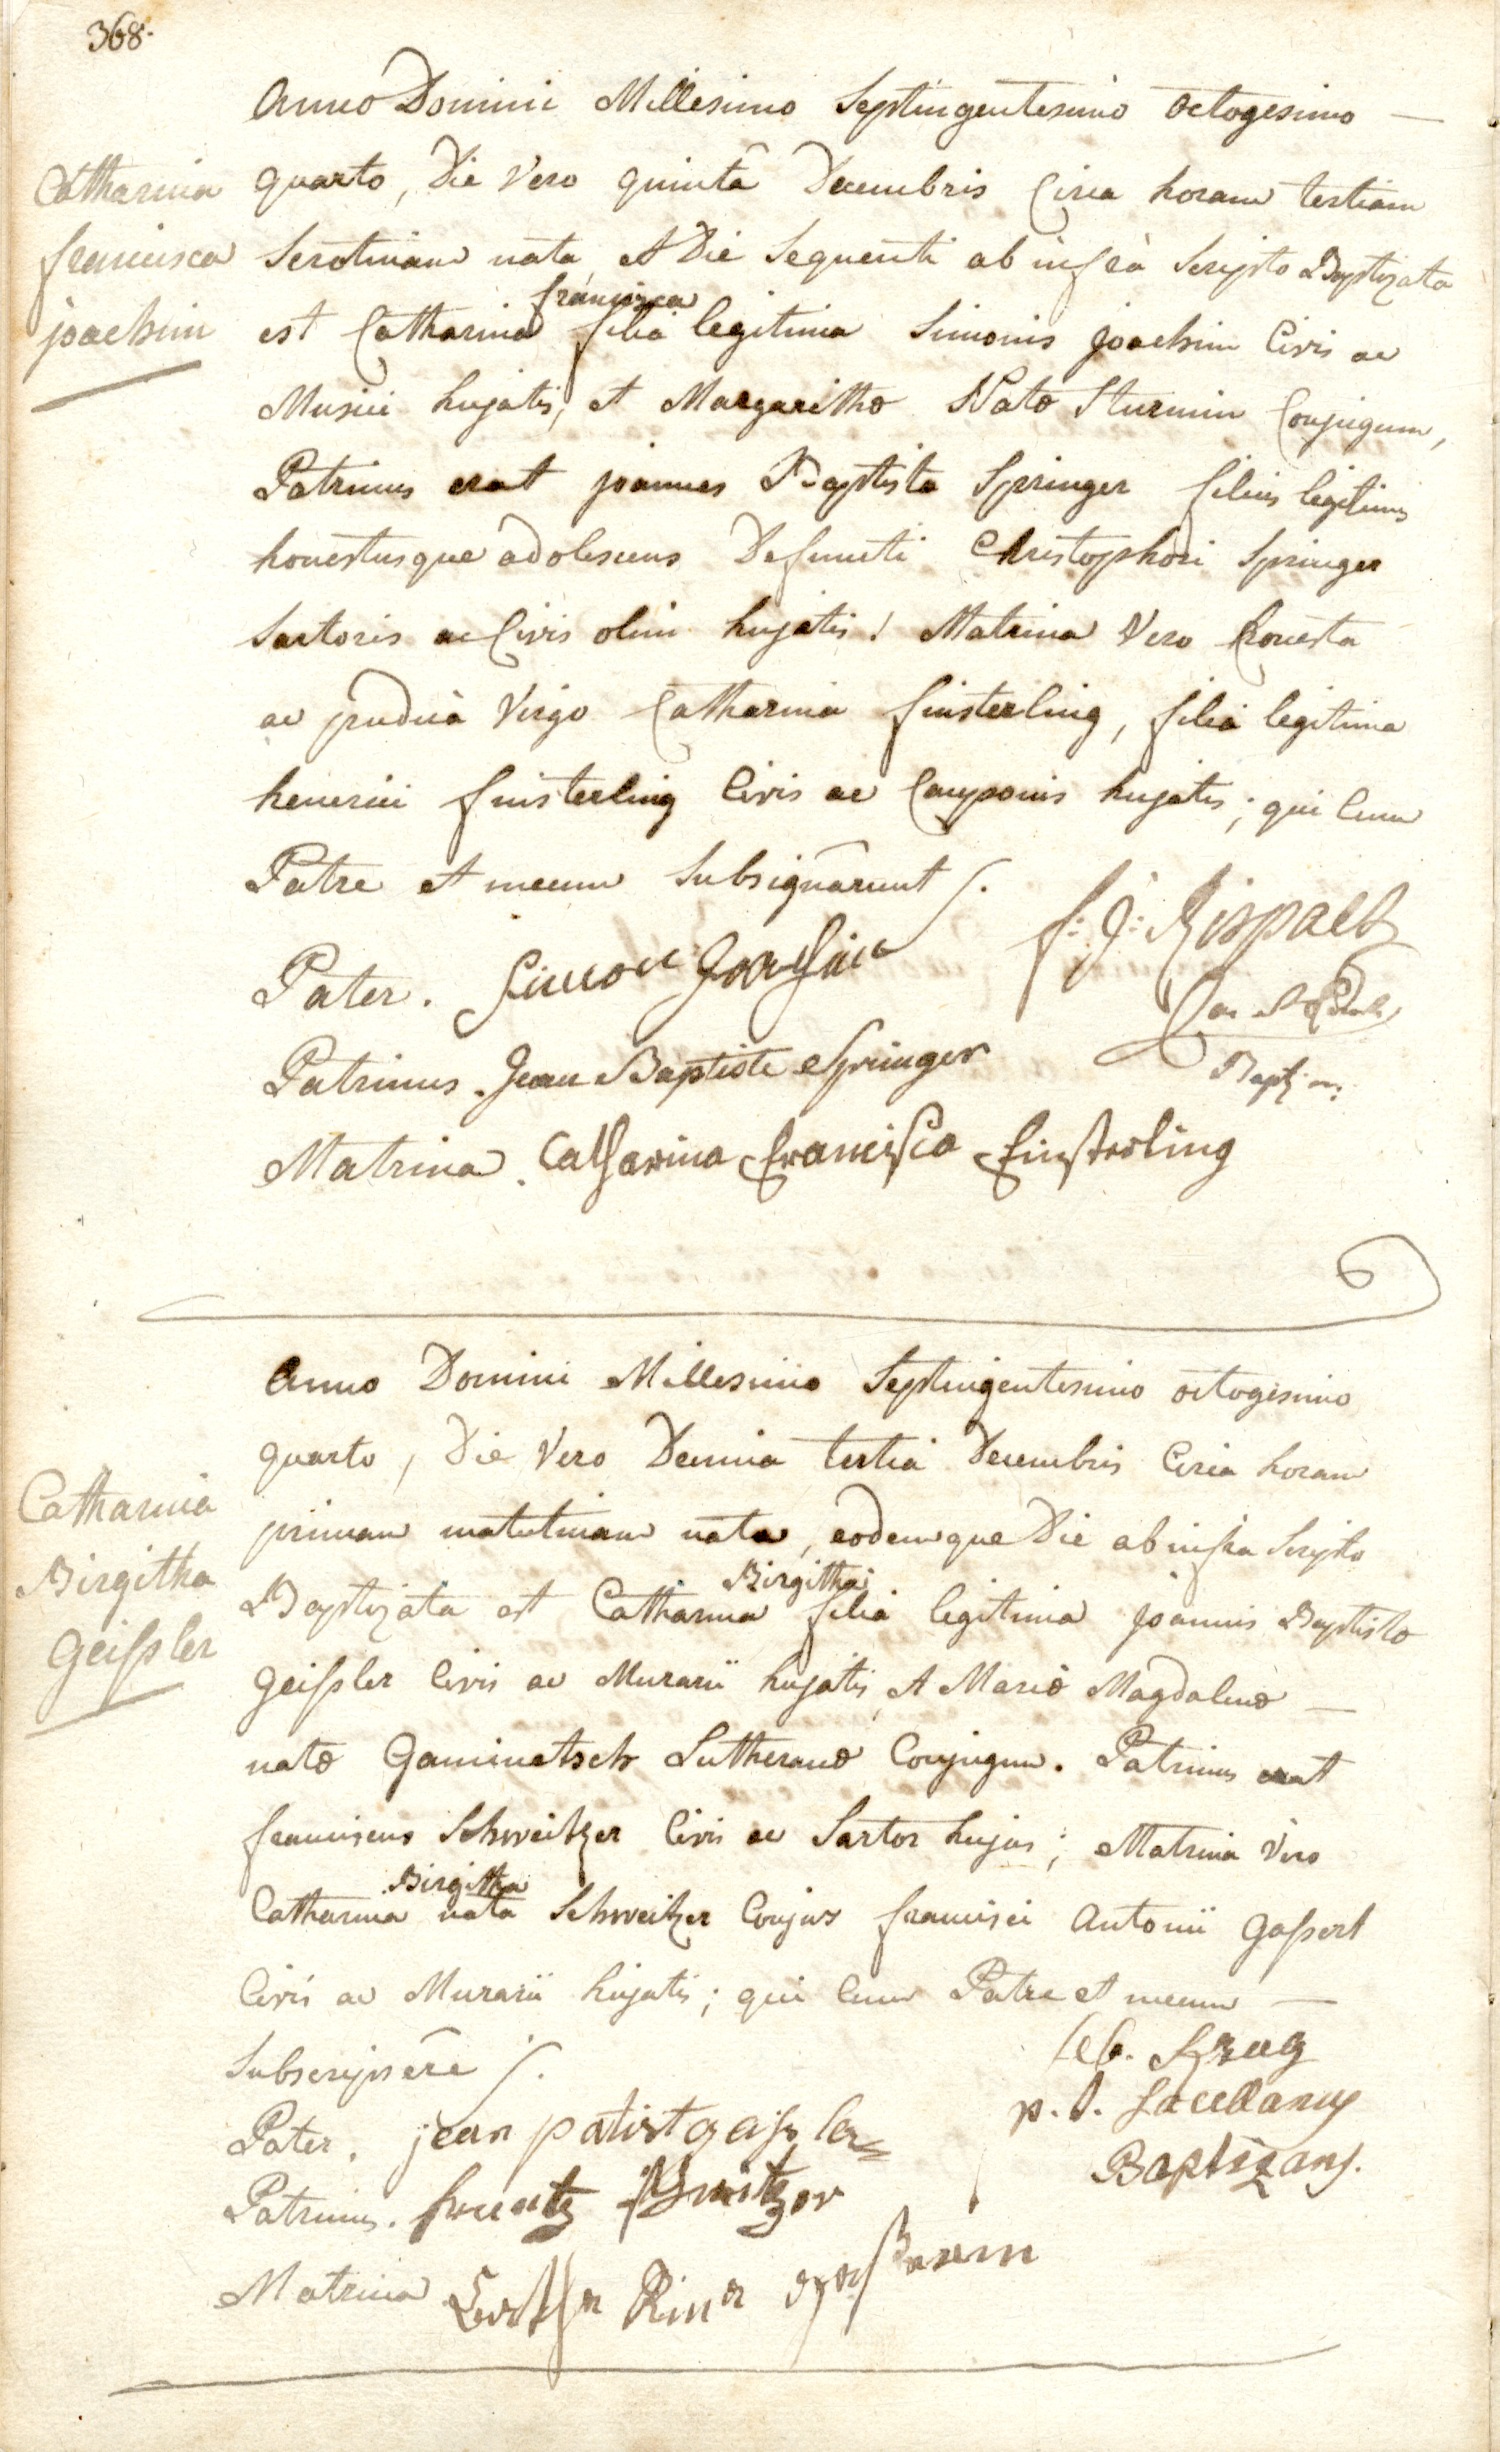 368.
Anno Domini Millesimo Septingentesimo octogesimo —
Catharina
francisca
joachim
quarto, Die Vero quintâ Decembris Circa horam tertiam
Serotinam nata et Die Sequenti ab infrà Scripto Baptizata
francisca
est Catharina filia legitima Simonis joachim Civis ac
Musici hujatis, et Margarithæ Natæ Sturmin Conjugum,
Patrinus erat joannes Baptista Springer filius legitimus
honestusque adolescens Defuncti Christophori Springer
Sartoris ac Civis olim hujatis! Matrina Vero honesta
ac pudica Virgo Catharina finsterling, filia legitima
henrici finsterling Civis ac Cauponis hujatis; qui Cum
Patre et mecum Subsignârunt /.
Pater. Simon Joachim
f: J:
Patrinus. Jean Baptiste Springer
Baptizans:
Matrina. Catharina Francisca Finsterling
Anno Domini Millesimo Septingentesimo octogesimo
Catharina
Birgitha
Geissler
quarto, Die Vero Decima tertia Decembris Circa horam
primam matutinam nata, eodemque Die ab infra Scripto
Birgitha
Baptizata est Catharina filia legitima joannis Baptistæ
Geissler Civis ac Murarii hujatis, et Mariæ Magdalenæ —
natæ Gaminetsch Lutheranæ Conjugum. Patrinus erat
franciscus Schweitzer Civis ac Sartor hujas; Matrina Vero
Birgitha
Catharina nata Schweitzer Conjux francisci Antonii Gassert
Civis ac Murarii hujatis; qui Cum Patre et mecum —
Subscripsêre /.
Seb. Krug
p. t. Sacellanus
Baptizans.
Pater. jean patist gaissler
Patrinus. frantz schweitzer
Matrina